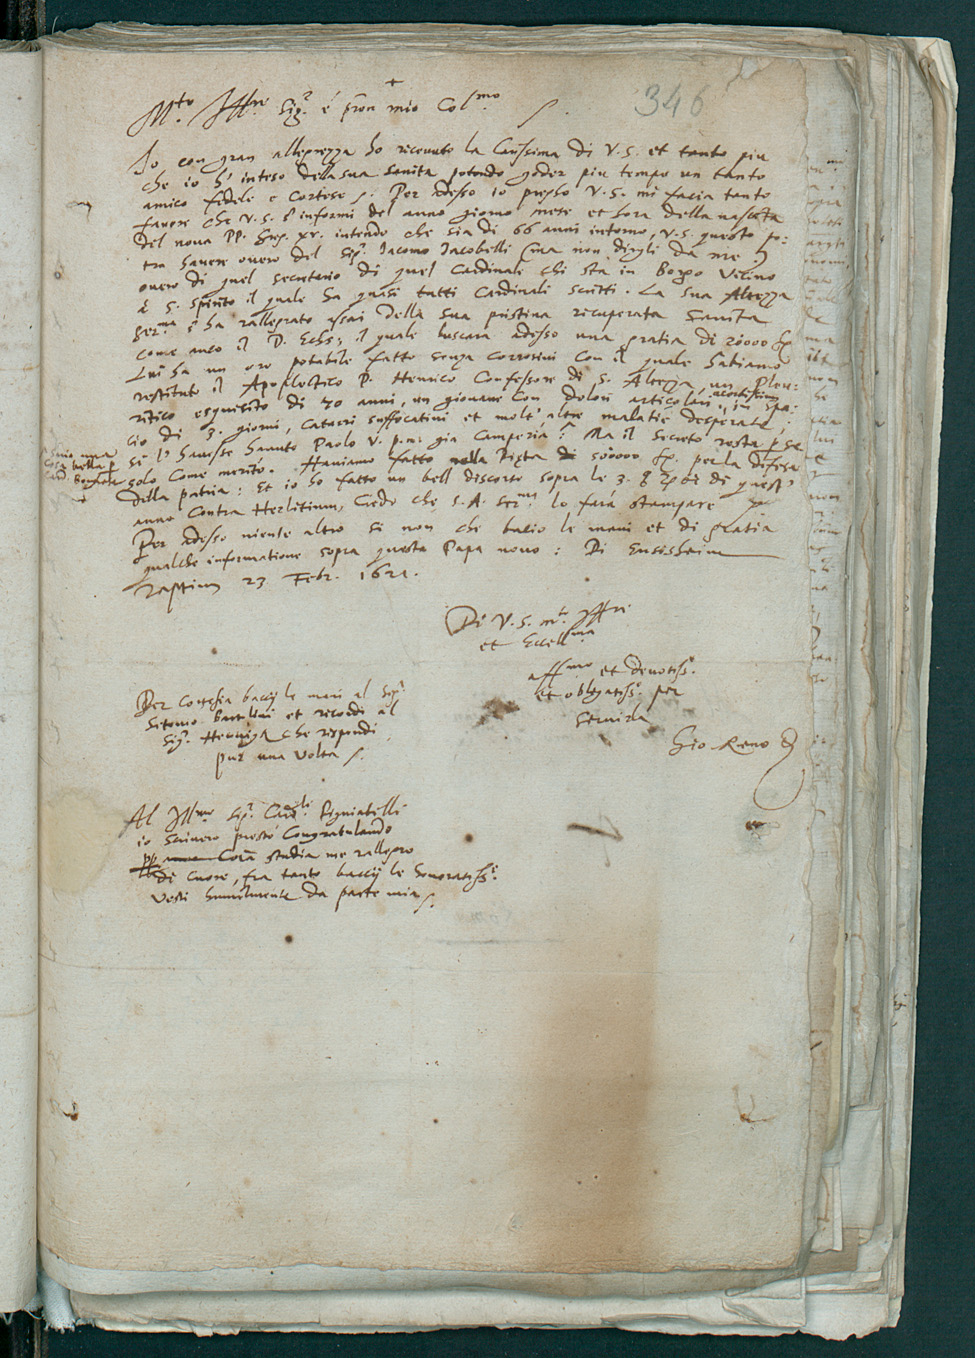 +
346
M.to Ill.re Sig.r é pron mio Col.mo
Io con gran allegrezza ho riceuuto la Carissima di V.S. et tanto piu
che io hó inteso della sua sanita potendo goder piu tempo un tanto
amico fidele e cortese. Per adesso io prego V.S. mi facia tanto
fauore che V.S. s'informi del anno giorno mese et hora della nascita
del nouo PP. Greg. xv. intendo che sia di 66 anni intorno, V.S. questo po:
tra hauere ouero del Sig.r Iacomo Iacobelli (ma non dirgli da me)
ouero di quel secretario di quel Cardinale chi sta in Borgo Vicino
á S. Spirito il quale ha quasi tutti Cardinali scritti. La sua Altezza
Ser.ma s'ha rallegrato assai della sua pristina recuperata sanita
come anco il P. il quale buscara adesso una gratia di 20000
Lui ha un oro potabile fatto senza corrosiui con il quale habiamo
restituito il Apoplectico P. Henrico Confessore di S. Altezza, un Pleu:
ritico esquisito di 70 anni, un giouane con dolori articolari acertissimi, in spa:
cio di 3. giorni, Catarri suffocatiui et molt' altre malatie desperate;
se l' hauesse hauuto Paolo V. p.m. gia Ma il secreto resta
solo come merito. Haniamo fatto nella Dixta di 500000 per la difesa
della patria: Et io ho fatto un bell discorso sopra le 3. di quest'
anno Contra Herlitium, Credo che S.A. Ser.ma lo fará stampare
Per adesso niente altro se non che bacio le mani et di gratia
qualche informatione sopra questo Papa nouo: Di Ensisheim
raptim 23 Febr. 1621.
Di V.S. m.to Ill.re
et Eccell.ma
aff.mo et deuotiss.o
et obligatiss.o per
seruirla
Gio Remo
Per cortesia baccij le mani al Sig.r
Bartolini et ricordi al
Sig.r che rispondi
pur una volta
Al Ill.mo Sig.r Card.li Pigniatelli
io scriuero presto Congratulando
studia me rallegro
di cuore, fra tanto baccij le honoratiss.e
Vesti humilmente da parte mia